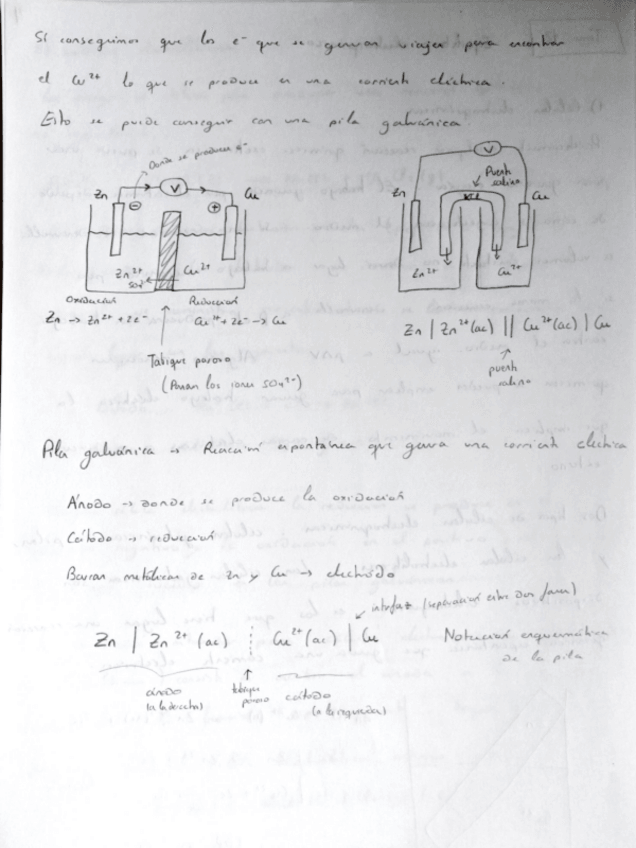 Si conseguimos que los e⁻ que se generan viajen para encontrar
el Cu²⁺ lo que se produce es una corriente eléctrica.
Esto se puede conseguir con una pila galvánica.
Donde se producen e⁻
Zn
V
Cu
⊖
⊕
Zn²⁺
SO₄²⁻
Cu²⁺
Oxidación
Reducción
Zn → Zn²⁺ + 2e⁻
Cu²⁺ + 2e⁻ → Cu
Tabique poroso
(Pasan los iones SO₄²⁻)
V
Puente
salino
Zn
KCl
Cu
Zn²⁺
Cu²⁺
Zn | Zn²⁺(ac) || Cu²⁺(ac) | Cu
puente
salino
Pila galvánica → Reacción espontánea que genera una corriente eléctrica
Ánodo → donde se produce la oxidación
Cátodo → reducción
Barras metálicas de Zn y Cu → electrodo
interfaz (separación entre dos fases)
Zn | Zn²⁺ (ac) ⋮ Cu²⁺(ac) | Cu
Notación esquemática
de la pila
ánodo
(a la derecha)
tabique
poroso
cátodo
(a la izquierda)